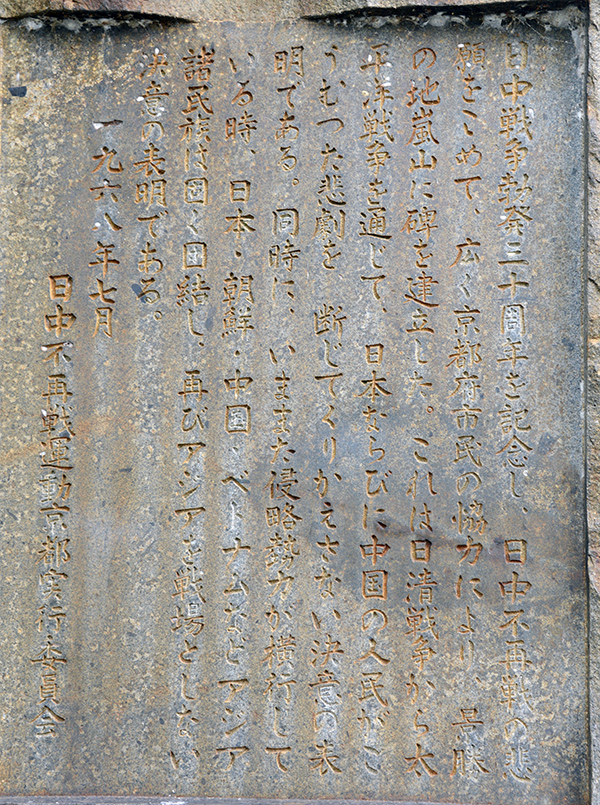 日中戦争勃発三十周年を記念し、日中不再戦の悲
願をこめて、広く京都府市民の協力により、景勝
の地嵐山に碑を建立した。これは日清戦争から太
平洋戦争を通じて、日本ならびに中国の人民がこ
うむつた悲劇を、断じてくりかえさない決意の表
明である。同時に、いままた侵略勢力が横行して
いる時、日本・朝鮮・中国・ベトナムなどアジア
諸民族は固く団結し、再びアジアを戦場としない
決意の表明である。
一九六八年七月
日中不再戦運動京都実行委員会